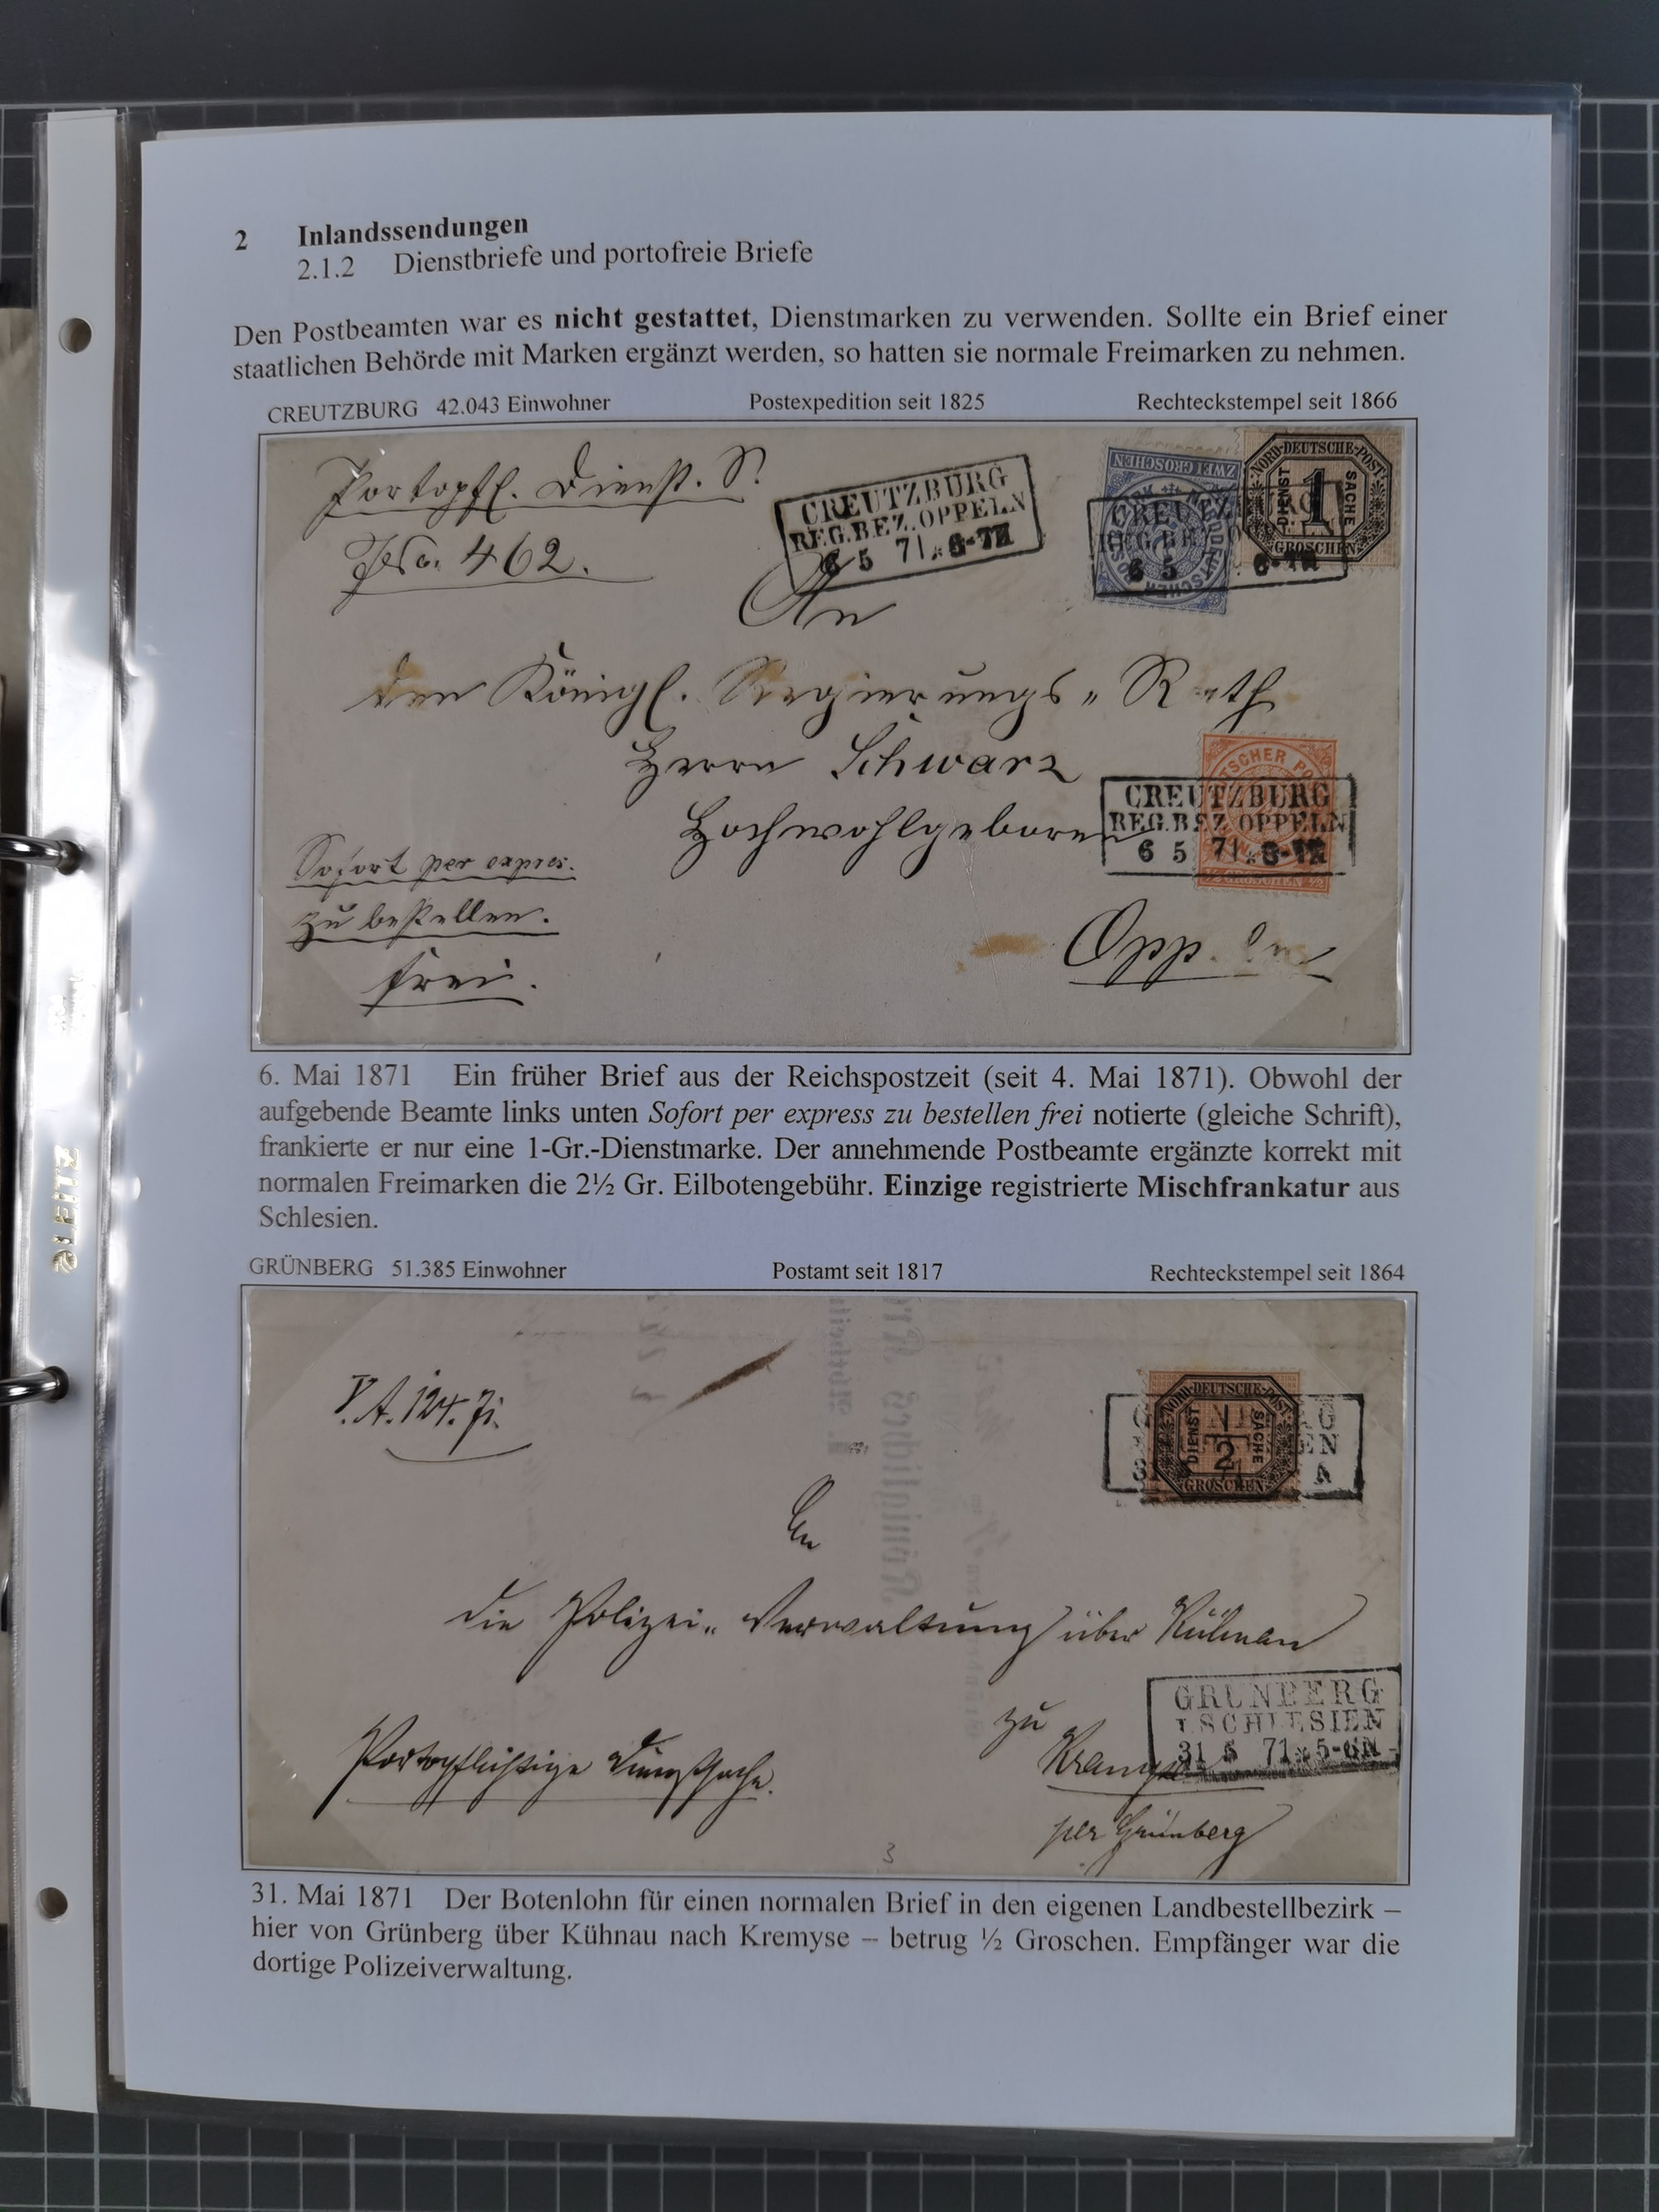 2 Inlandssendungen
2.1.2 Dienstbriefe und portofreie Briefe
Den Postbeamten war es nicht gestattet, Dienstmarken zu verwenden. Sollte ein Brief einer
staatlichen Behörde mit Marken ergänzt werden, so hatten sie normale Freimarken zu nehmen.
CREUTZBURG 42.043 Einwohner Postexpedition seit 1825 Rechteckstempel seit 1866
Portopfl. Dienst. S.
No. 462.
CREUTZBURG
REG.BEZ.OPPELN
6 5 71
ZWEI GROSCHEN
NORDDEUTSCHE-POST
DIENST SACHE
1
GROSCHEN
CREUTZ
6 5
An
den Königl. Regierungs-Rath
Herrn Schwarz
Hochwohlgeboren
CREUTZBURG
REG.BEZ.OPPELN
6 5 71
Sofort per express.
zu bestellen.
frei.
Oppeln
6. Mai 1871 Ein früher Brief aus der Reichspostzeit (seit 4. Mai 1871). Obwohl der
aufgebende Beamte links unten Sofort per express zu bestellen frei notierte (gleiche Schrift),
frankierte er nur eine 1-Gr.-Dienstmarke. Der annehmende Postbeamte ergänzte korrekt mit
normalen Freimarken die 2½ Gr. Eilbotengebühr. Einzige registrierte Mischfrankatur aus
Schlesien.
GRÜNBERG 51.385 Einwohner Postamt seit 1817 Rechteckstempel seit 1864
NORDDEUTSCHE-POST
DIENST SACHE
GROSCHEN
An
die Polizei-Verwaltung über Kühnau
zu
GRÜNBERG
I.SCHLESIEN
31 5 71 5-6N
Portopflichtige Dienstsache.
per Grünberg
3
31. Mai 1871 Der Botenlohn für einen normalen Brief in den eigenen Landbestellbezirk –
hier von Grünberg über Kühnau nach Kremyse – betrug ½ Groschen. Empfänger war die
dortige Polizeiverwaltung.